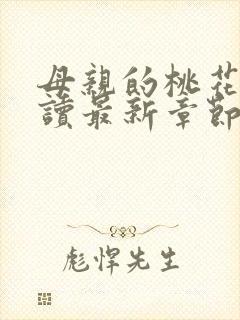 母親的桃花
讀最新章節
彪悍先生